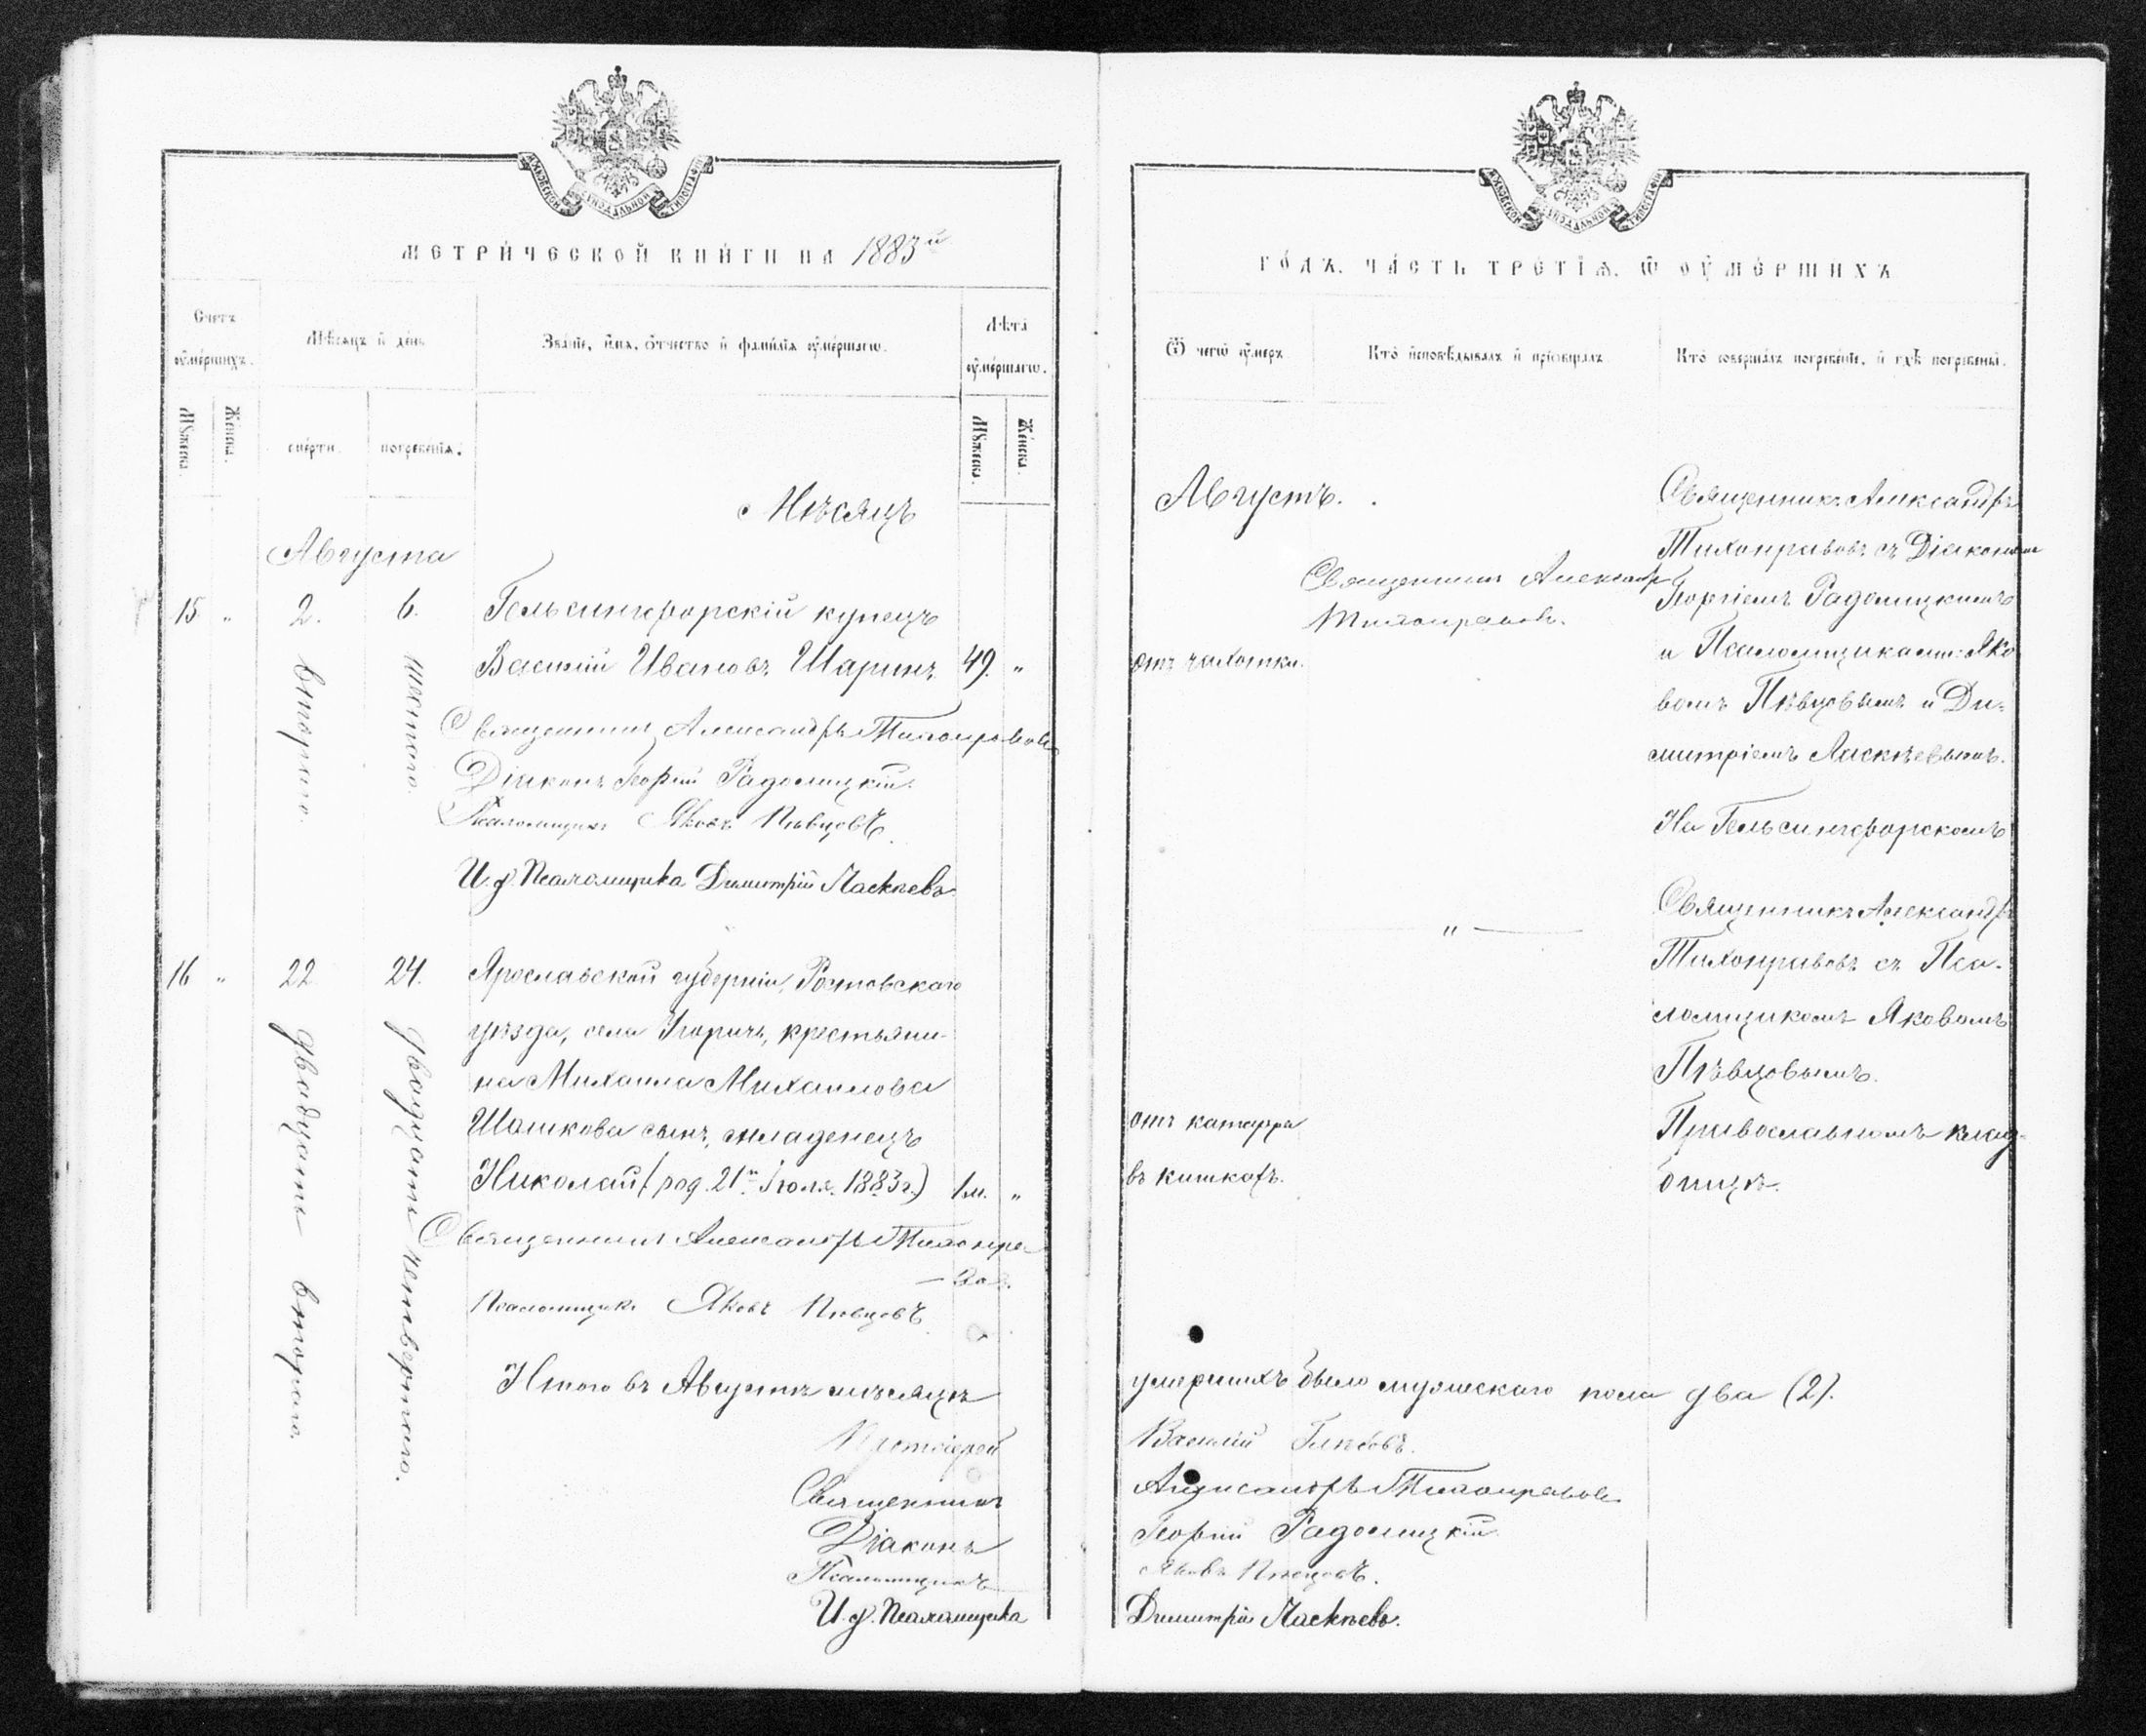 МЕТРИЧЕСКОЙ КНИГИ НА 1883й
Счетъ умершихъ.
Мѣсяцъ и день
Званіе, имя, отчество и фамилія умершагω.
Лѣта умершагω.
Мужеска.
Женска.
смерти.
погребенія.
Мужеска.
Женска.
Мѣсяцъ
Августа
15. " 2. 6. Гельсингфорскій купецъ
второго.
шестого.
Василій Ивановъ Шаринъ 49. "
Священникъ Александръ Тихонравовъ
Діаконъ Георгій Радомицкій.
Псаломщикъ Яковъ Пѣвцовъ.
И. д. Псаломщика Димитрій Ласкѣевъ.
16 " 22 24. Ярославской губерніи, Ростовскаго
двадцать второго.
двадцать четвертаго.
уѣзда, села Угоричъ, крестьяни-
на Михаила Михаилова
Шашкова сынъ, младенецъ
Николай (род. 21го Іюля 1883 г.) 1 м. "
Священникъ Александръ Тихонра
– вовъ.
Псаломщикъ Яковъ Пѣвцовъ
Итого въ Августѣ мѣсяцѣ
Протоіерей
Священникъ
Діаконъ
Псаломщикъ
И. д. Псаломщика
ГОДЪ, ЧАСТЬ ТРЕТІЯ, Ѿ ОУМЕРШИХЪ
Ѿ чегω умеръ.
Кто исповѣдывалъ и пріобщалъ.
Кто совершалъ погребеніе, и гдѣ погребены.
Августъ.
отъ чахотки.
Священникъ Александръ
Тихонравовъ.
Священникъ Александръ
Тихонравовъ съ Діакономъ
Георгіемъ Радомицкимъ
и Псаломщиками: Яко
вомъ Пѣвцовымъ и Ди-
митріемъ Ласкѣевымъ.
На Гельсингфорскомъ
"
Священникъ Александръ
Тихонравовъ съ Пса-
ломщикомъ Яковомъ
Пѣвцовымъ.
отъ катарра
въ кишкахъ.
Православномъ клад-
бищѣ.
умершихъ было мужескаго пола два (2).
Василій Глѣбовъ.
Александръ Тихонравовъ
Георгій Радомицкій
Яковъ Пѣвцовъ.
Димитрій Ласкѣевъ.